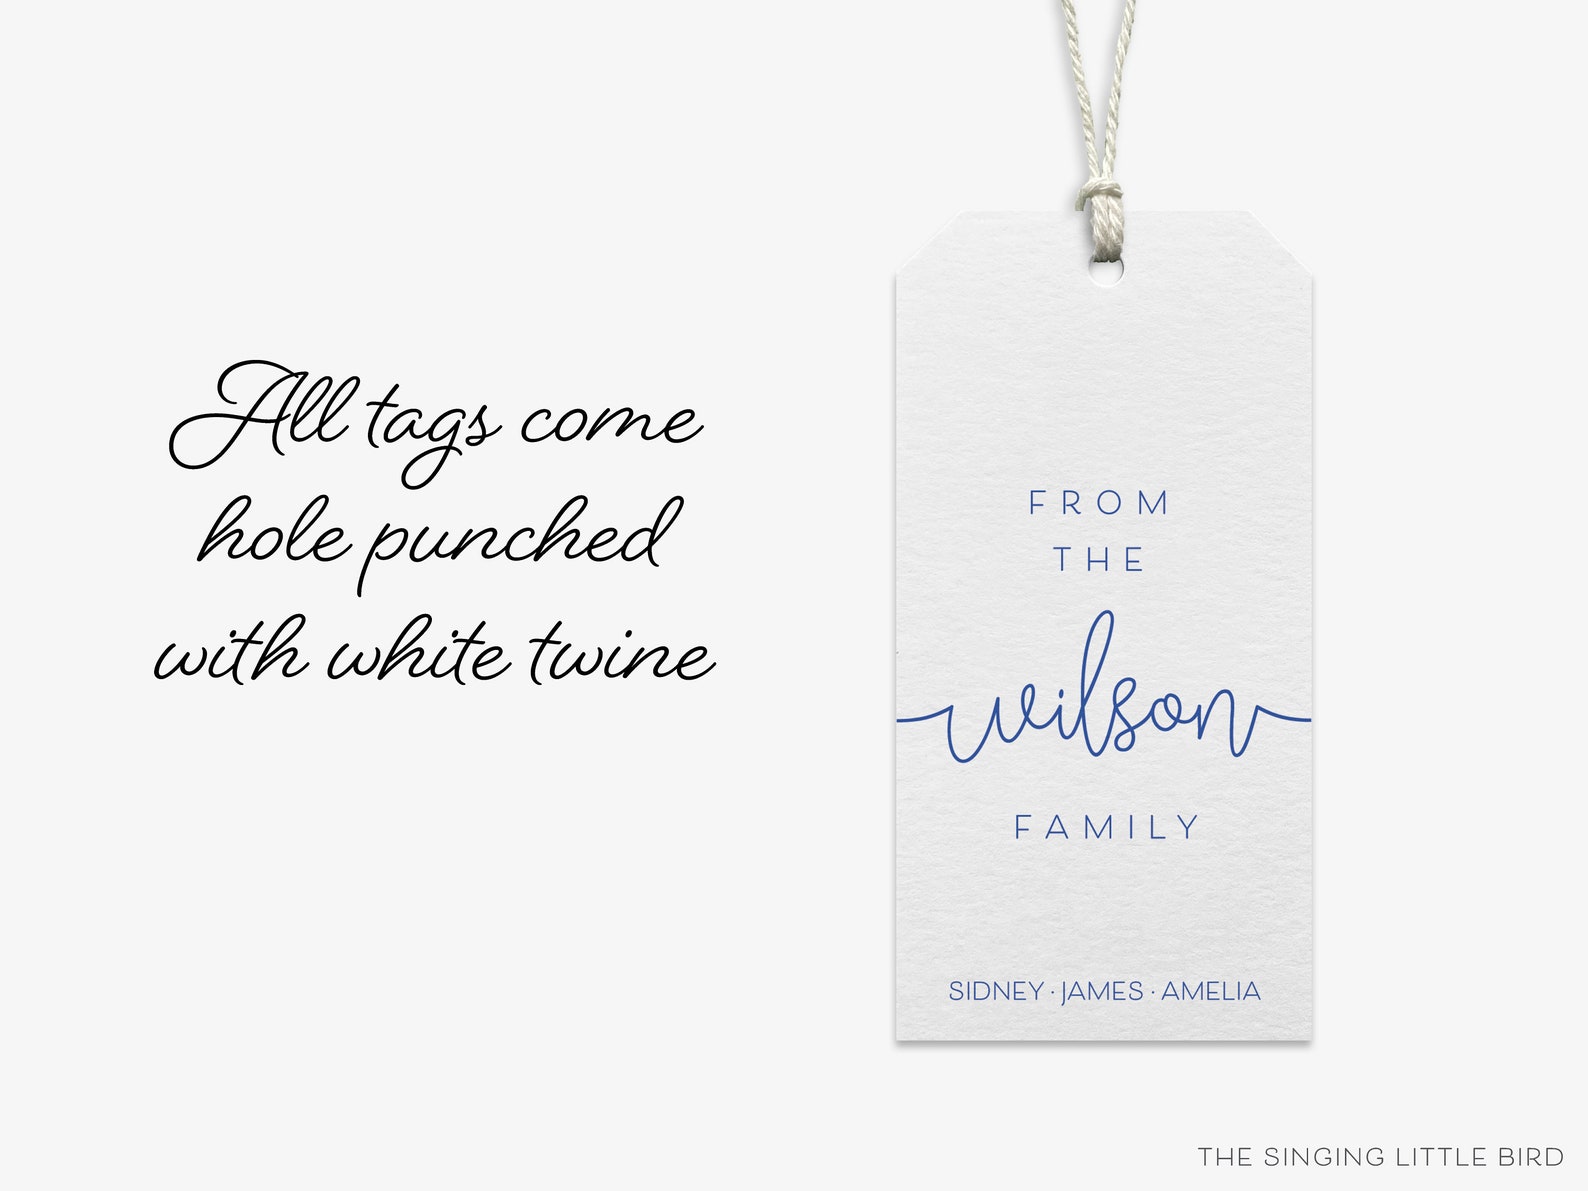 All tags come
hole punched
with white twine
FROM
THE
wilson
FAMILY
SIDNEY · JAMES · AMELIA
THE SINGING LITTLE BIRD